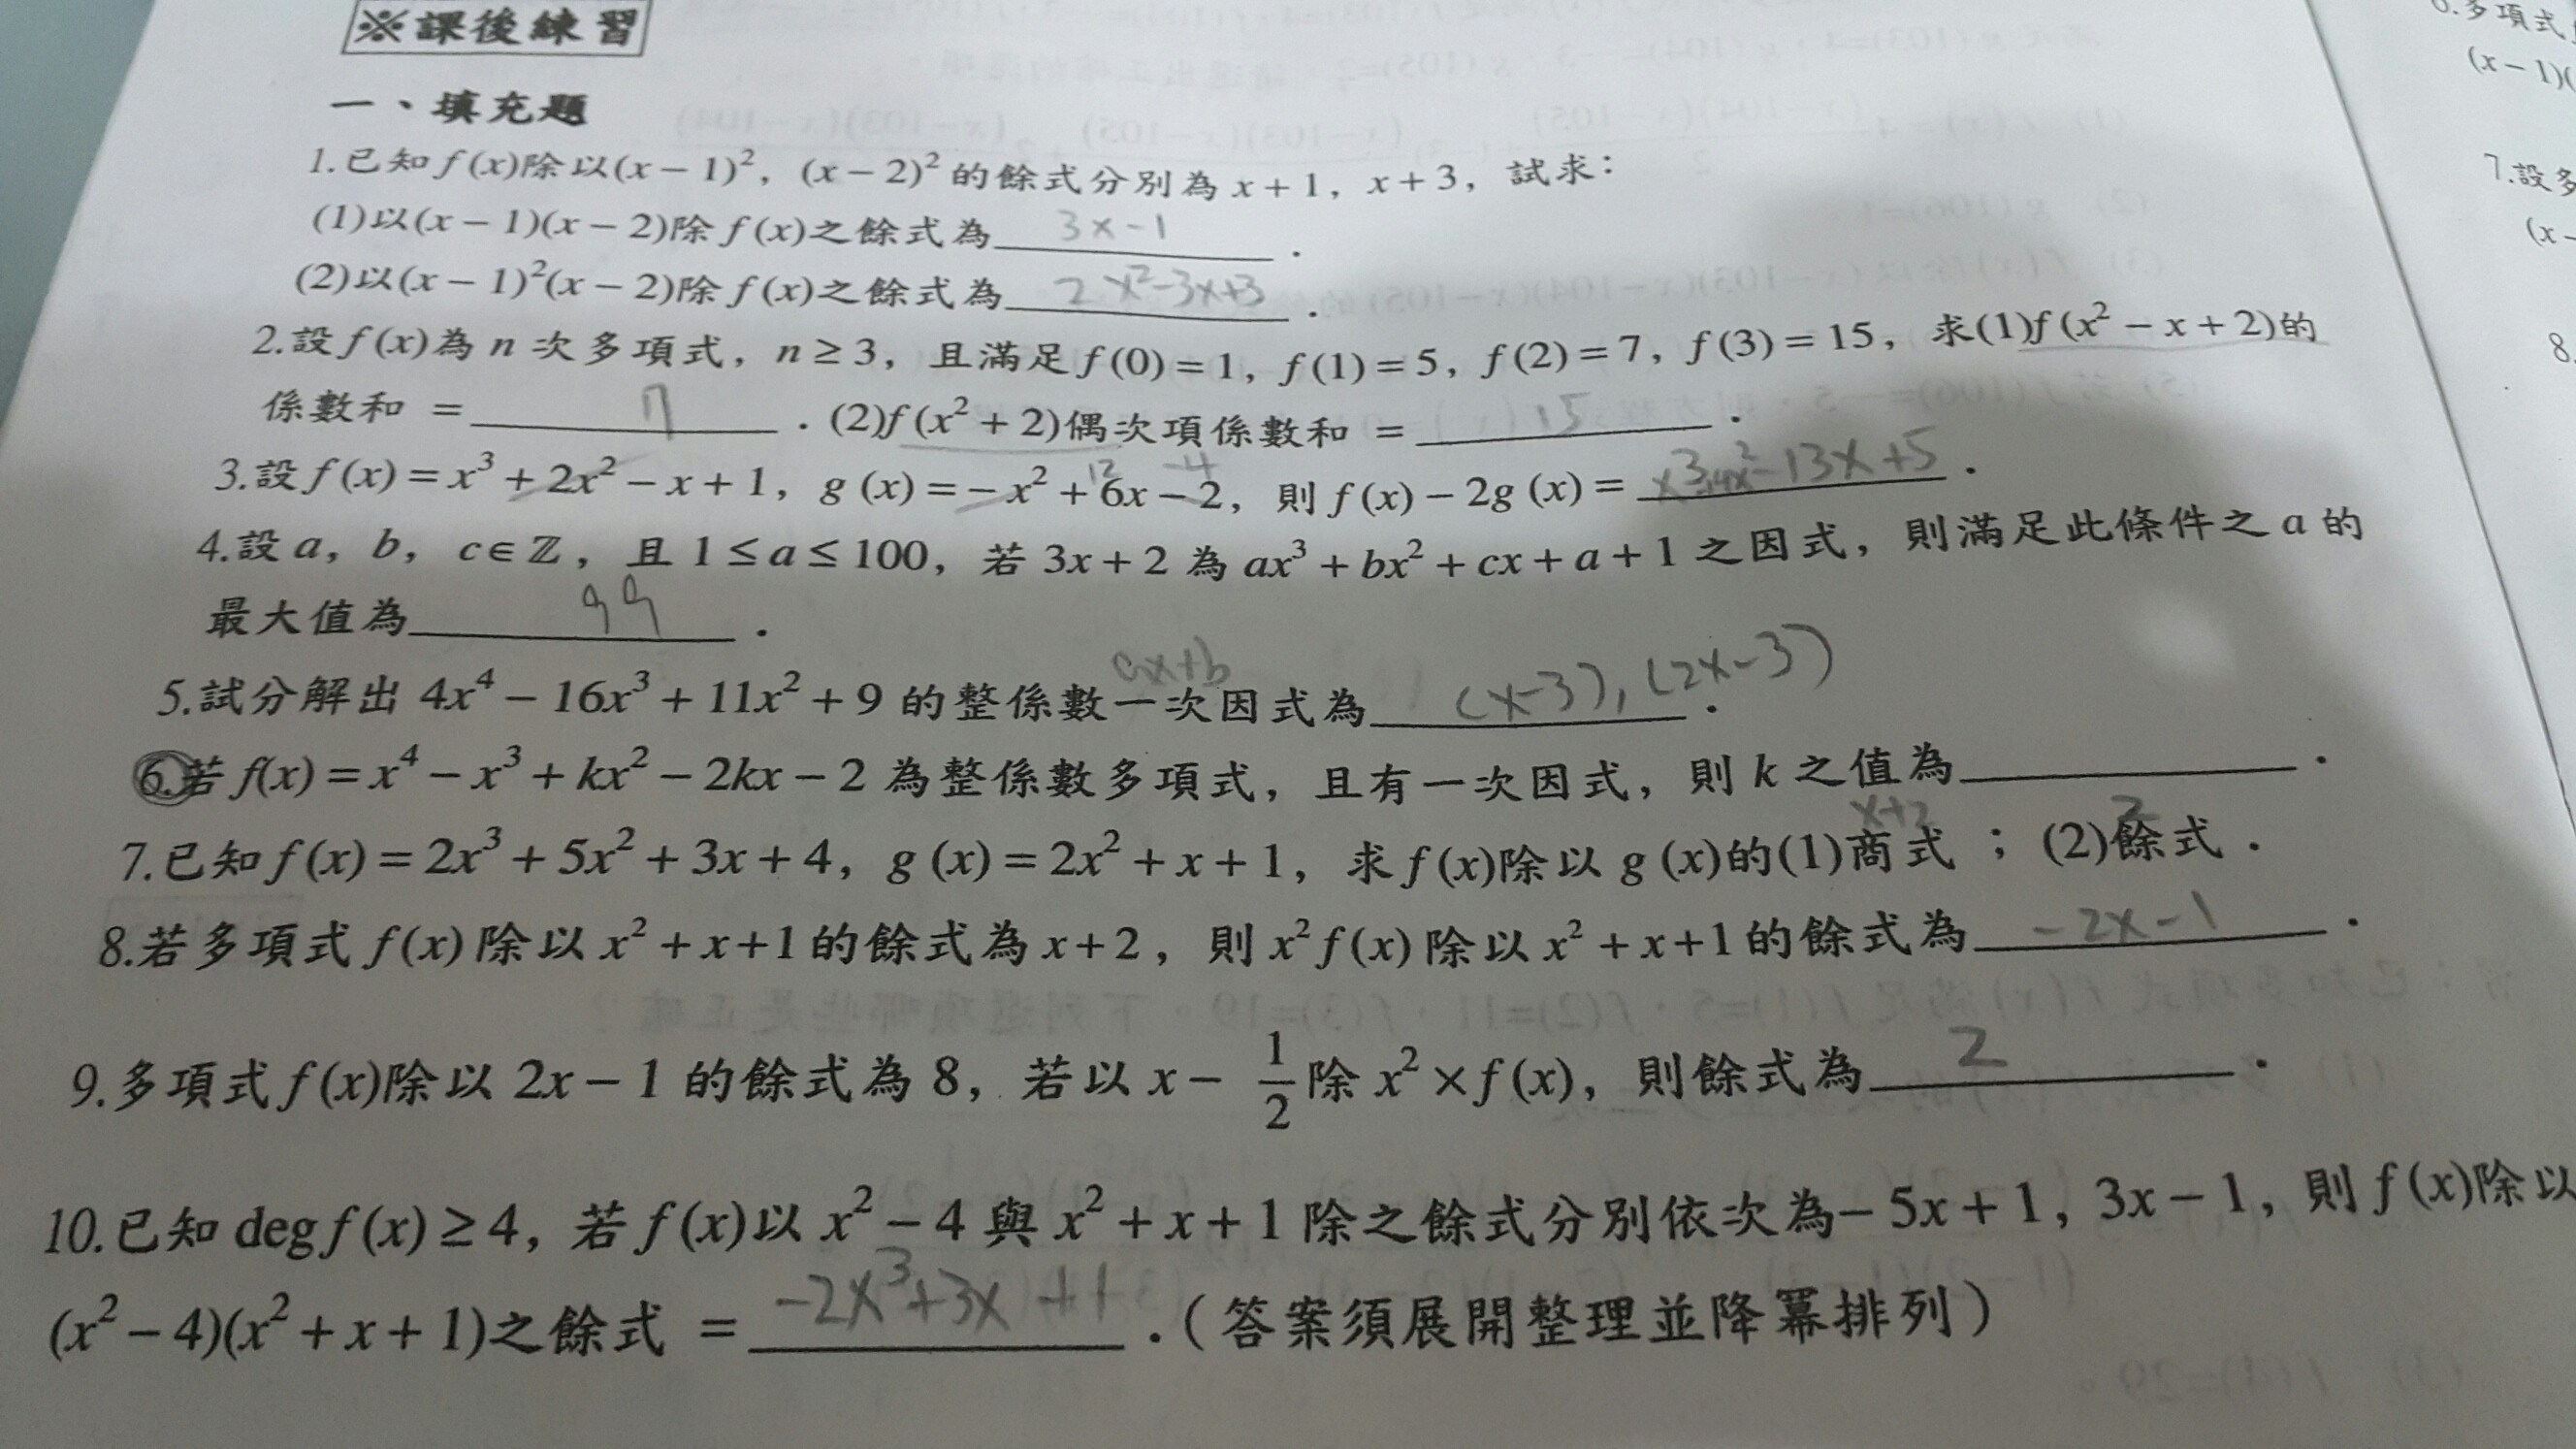 ※課後練習
一、填充題
1.已知f(x)除以(x－1)²，(x－2)²的餘式分別為x＋1，x＋3，試求：
(1)以(x－1)(x－2)除f(x)之餘式為 3x-1 ．
(2)以(x－1)²(x－2)除f(x)之餘式為 2x²-3x+3 ．
2.設f(x)為n次多項式，n≥3，且滿足f(0)＝1，f(1)＝5，f(2)＝7，f(3)＝15，求(1)f(x²－x＋2)的
係數和＝ 7 ．(2)f(x²＋2)偶次項係數和＝ 15 ．
12 -4
3.設f(x)＝x³＋2x²－x＋1，g(x)＝－x²＋6x－2，則f(x)－2g(x)＝ x³+4x²-13x+5 ．
4.設a，b，c∈ℤ，且1≤a≤100，若3x＋2為ax³＋bx²＋cx＋a＋1之因式，則滿足此條件之a的
最大值為 99 ．
ax+b
5.試分解出4x⁴－16x³＋11x²＋9的整係數一次因式為 (x-3),(2x-3) ．
6.若f(x)＝x⁴－x³＋kx²－2kx－2為整係數多項式，且有一次因式，則k之值為 ．
x+2 2
7.已知f(x)＝2x³＋5x²＋3x＋4，g(x)＝2x²＋x＋1，求f(x)除以g(x)的(1)商式；(2)餘式．
8.若多項式f(x)除以x²＋x+1的餘式為x+2，則x²f(x)除以x²＋x+1的餘式為 -2x-1 ．
9.多項式f(x)除以2x－1的餘式為8，若以x－1/2除x²×f(x)，則餘式為 2 ．
10.已知deg f(x)≥4，若f(x)以x²－4與x²＋x＋1除之餘式分別依次為－5x＋1，3x－1，則f(x)除以
(x²－4)(x²＋x＋1)之餘式＝ -2x³+3x+1 ．（答案須展開整理並降冪排列）
6.多項式
(x－1)(
7.設多
(x－
8.